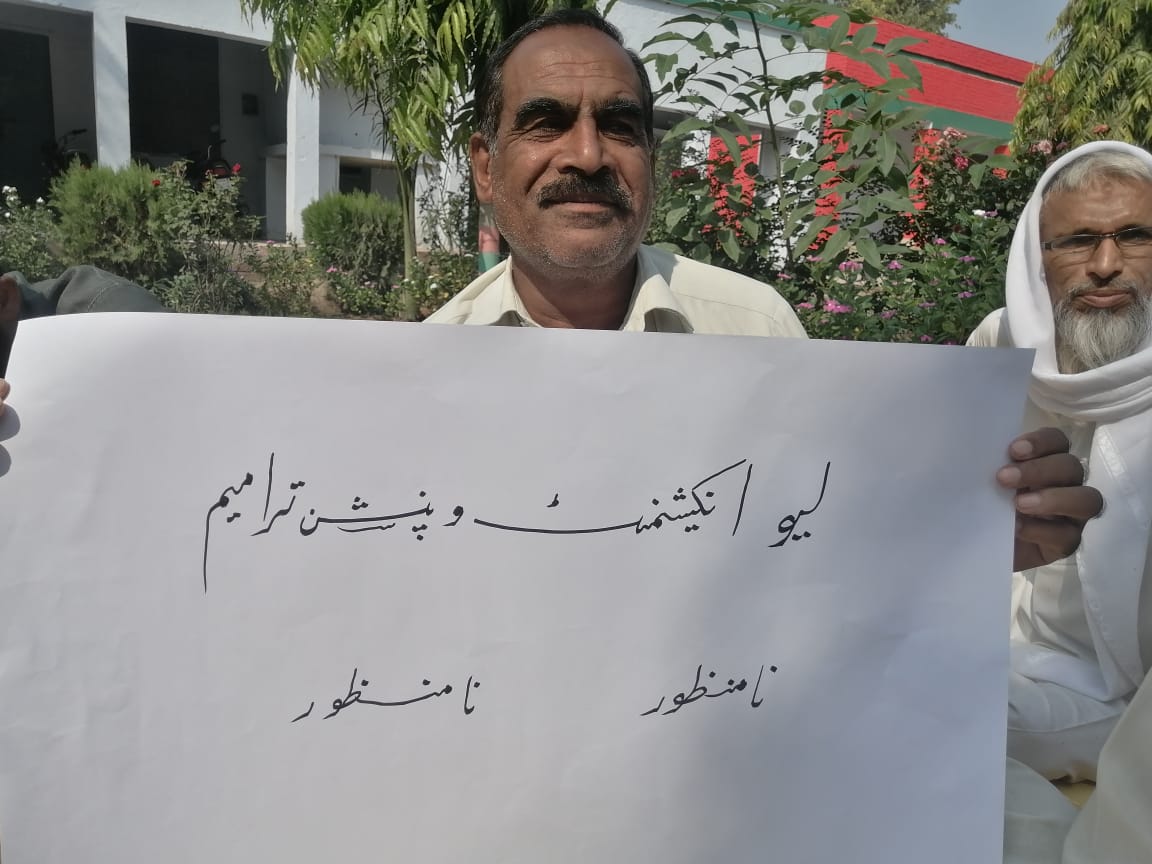 لیو انکیشمنٹ و پنشن ترامیم
نامنظور نامنظور